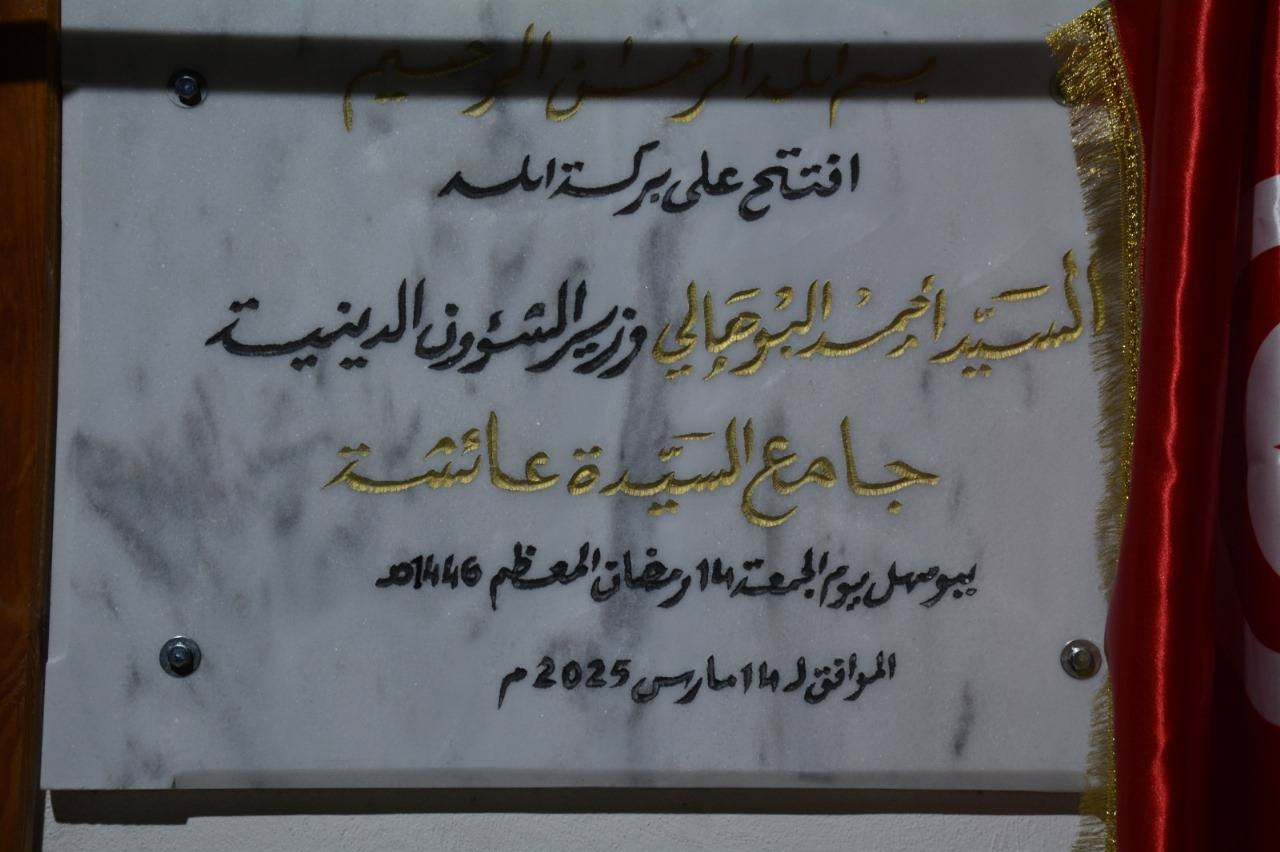 بسم الله الرحمان الرحيم
افتتح على بركة الله
السَيّد احْمِدْ البُوهَالي وزير الشؤون الدينية
جامع السَيّدة عائشة
ببومهل يوم الجمعة 14 رمضان المعظم 1446هـ
الموافق لـ 14 مارس 2025 م